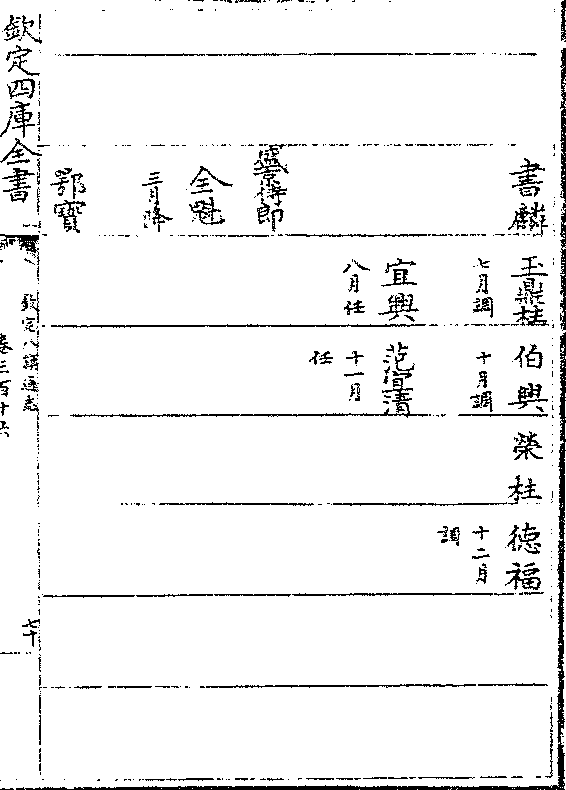 書麟
盛京侍郎
全魁
三月降
鄂寶
玉鼎柱
七月調
宜興
八月任
伯興
十月調
范宜清
十一月
任
榮柱
德福
十二月
調
欽定四庫全書
欽定八旗通志
卷三百十六
七十